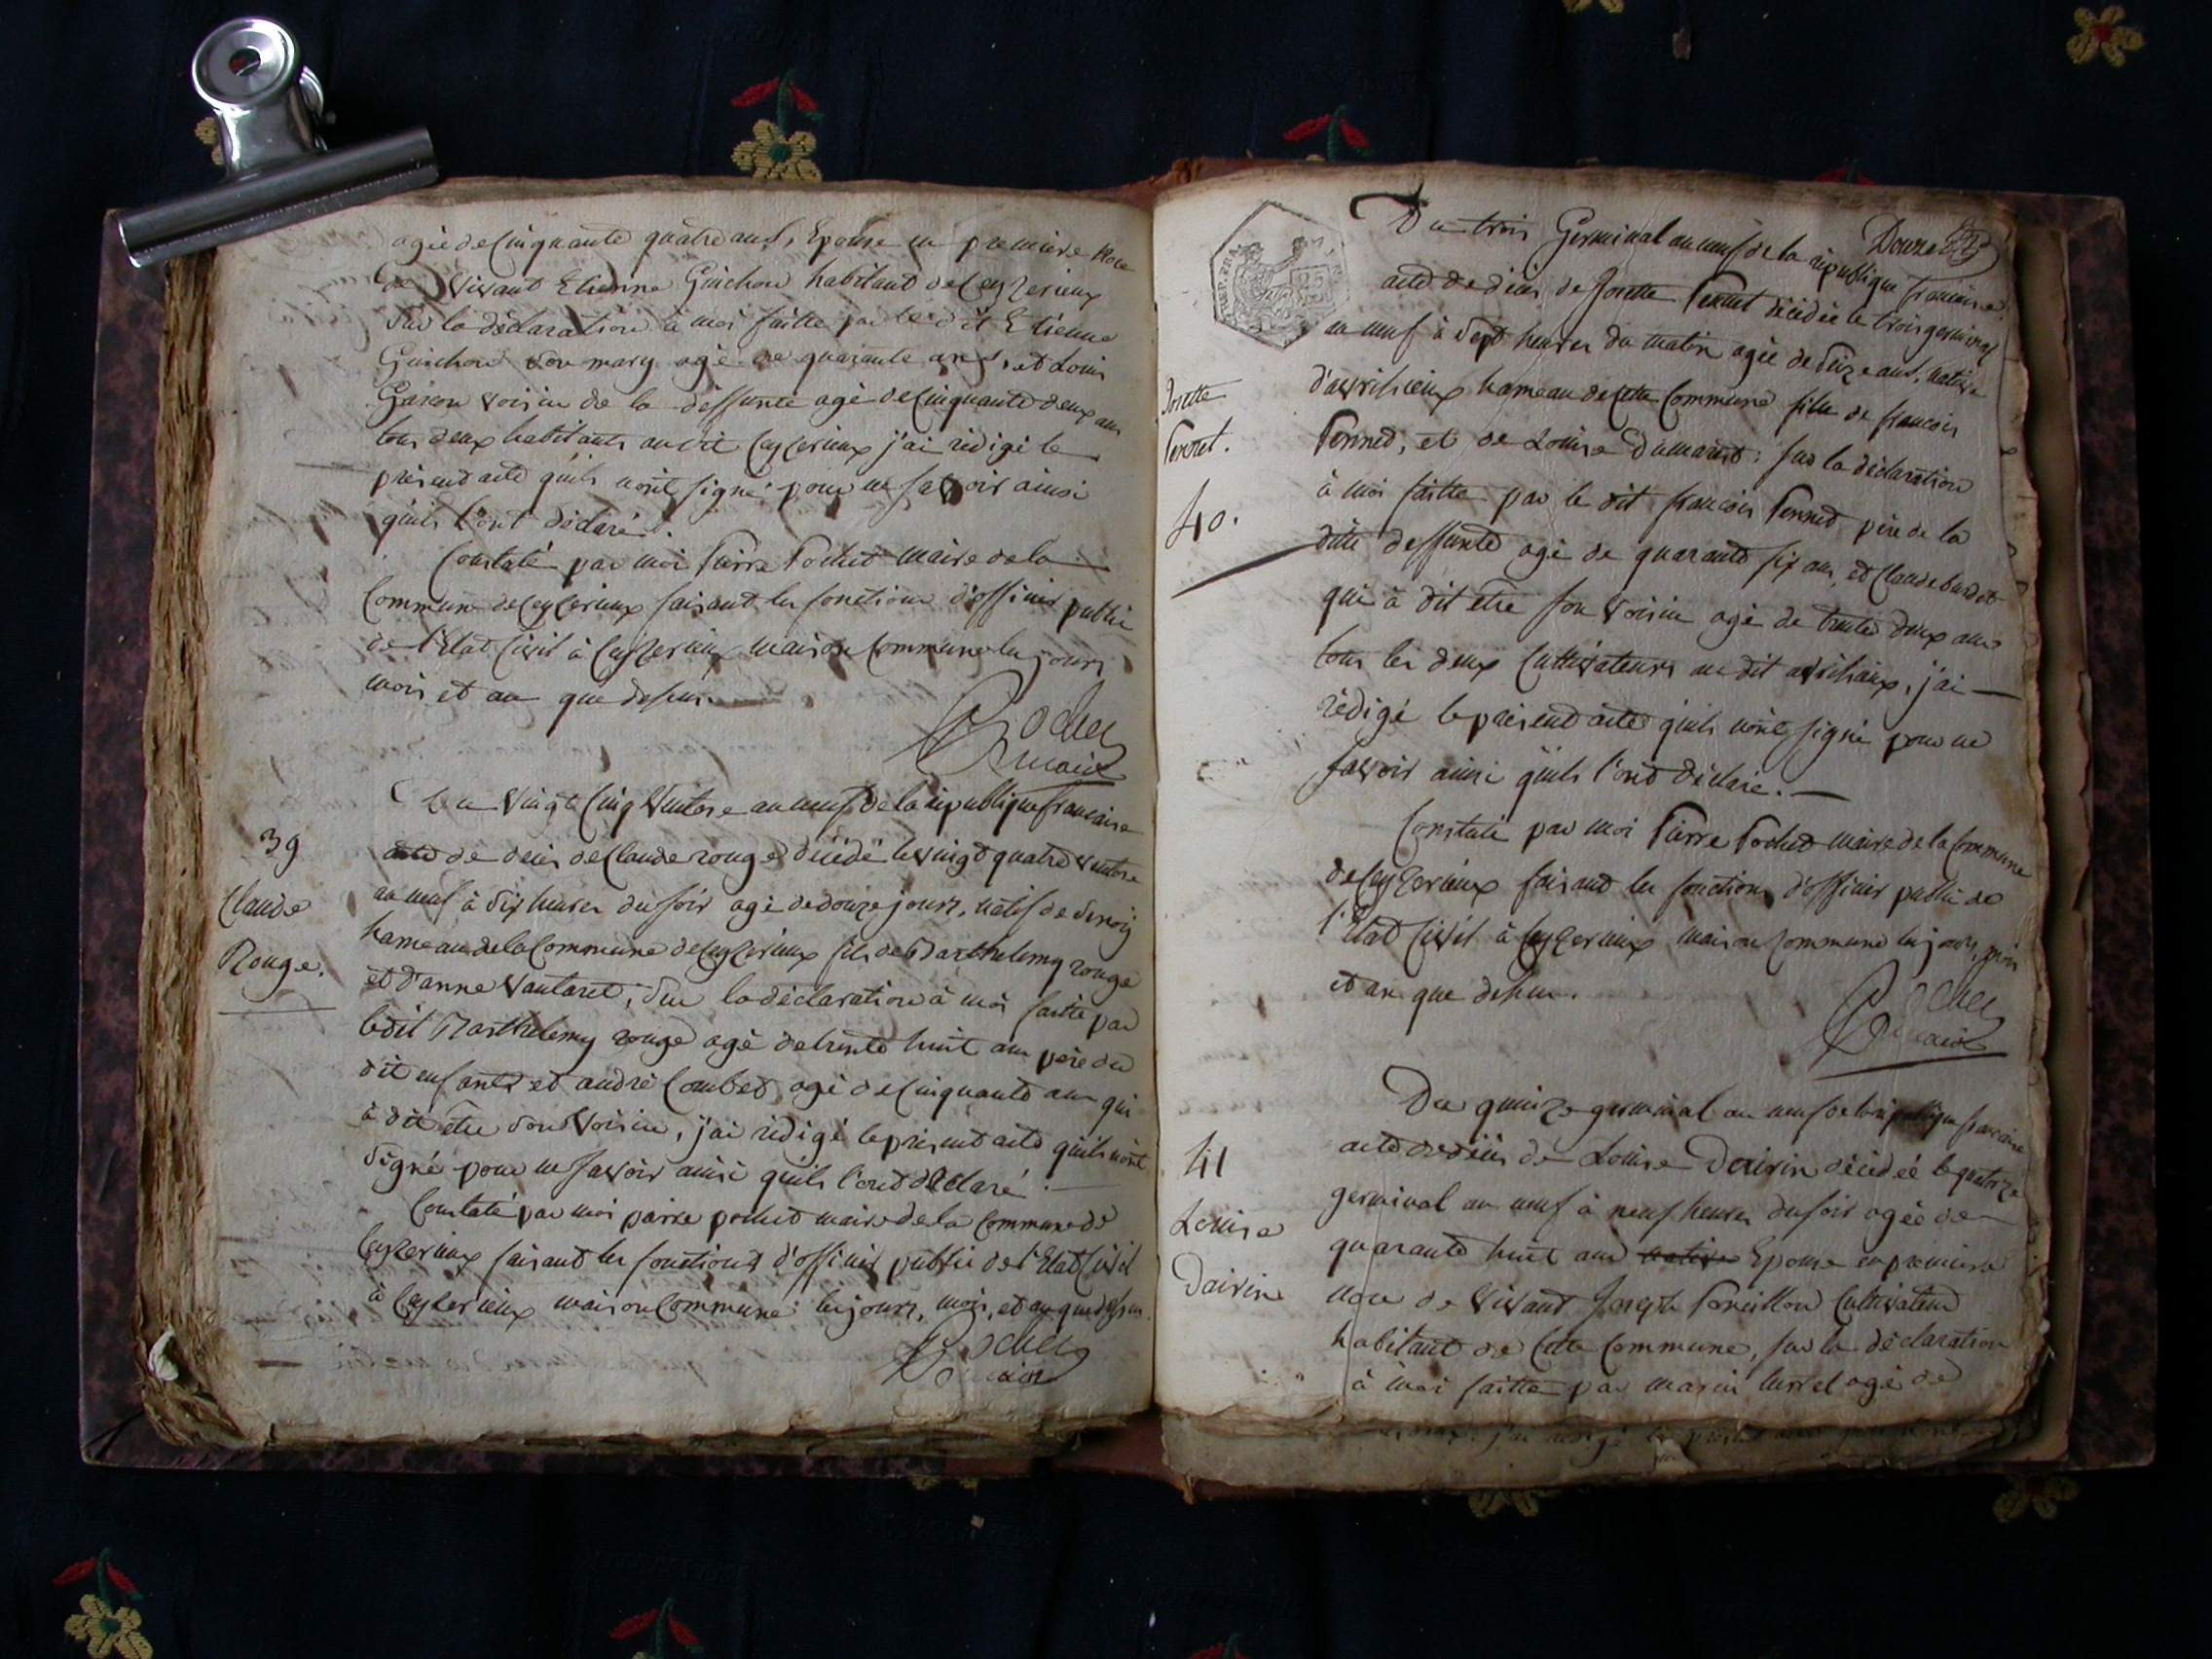 agée de Cinquante quatre ans, Epouse en premiere Noce
de Vivant Etienne Guichon habitant de Ceyzerieux
Sur la déclaration à moi faitte par le dit Etienne
Guichon Son mary agé de quarante ans, et Louis
voisin de la deffunte agé de Cinquante deux ans
tous deux habitants audit Ceyzerieux j'ai rédigé le
présent acte qu'ils n'ont signé pour ne savoir ainsi
qu'ils l'ont déclaré.
Constaté par moi Pierre Pochet Maire de la
Commune de Ceyzerieux faisant les fonctions d'officier public
de l'Etat Civil à Ceyzerieux maison Commune les jours
mois et an que dessus.
Pochet
maire
Du Vingt Cinq Ventose an neuf de la république francaise
39
acte de décès de Claude rouge décédé le vingt quatre ventose
Claude
an neuf à Six heures du soir agé de douze jours, natif de
Rouge.
hameau de la Commune de Ceyzerieux fils de Barthelemy rouge
et d'anne Vautaret; Sur la déclaration à moi faitte par
le dit Barthelemy rouge agé de trente huit ans père du
dit enfant et andré Combet agé de Cinquante ans qui
à dit etre Son Voisin, j'ai rédigé le présent acte qu'ils n'ont
Signé pour ne savoir ainsi qu'ils l'ont déclaré.
Constaté par moi pierre pochet maire de la Commune de
Ceyzerieux faisant les fonctions d'officier public de l'Etat Civil
à Ceyzerieux maison Commune les jours, mois, et an que dessus.
Pochet
maire
Douze
Du trois Germinal an neuf de la république francaise
acte de décès de Josette Pernet décédée le trois germinal
an neuf à Sept heures du matin agée de Seize ans, native
Josette
d'avrissieux hameau de cette Commune fille de francois
Pernet.
Pernet, et de Louise Dumarest: sur la déclaration
40.
à moi faitte par le dit francois Pernet père de la
dite deffunte agé de quarante six ans, et Claude
qui à dit etre son Voisin agé de trente deux ans
tous les deux Cultivateurs au dit avrissieux, j'ai
rédigé le présent acte qu'ils n'ont signé pour ne
savoir ainsi qu'ils l'ont déclaré.
Constaté par moi Pierre Pochet maire de la Commune
de Ceyzerieux faisant les fonctions d'officier public de
l'Etat Civil à Ceyzerieux maison Commune les jours, mois
et an que dessus.
Pochet
maire
Du quinze germinal an neuf de la république francaise
41
acte de décès de Louise Dairin décédée le quatorze
Louise
germinal an neuf à neuf heures du soir agée de
Dairin
quarante huit ans native Epouse en premiere
noce de Vivant Joseph Cultivateur
habitant de Cette Commune, sur la déclaration
à moi faitte par agé de